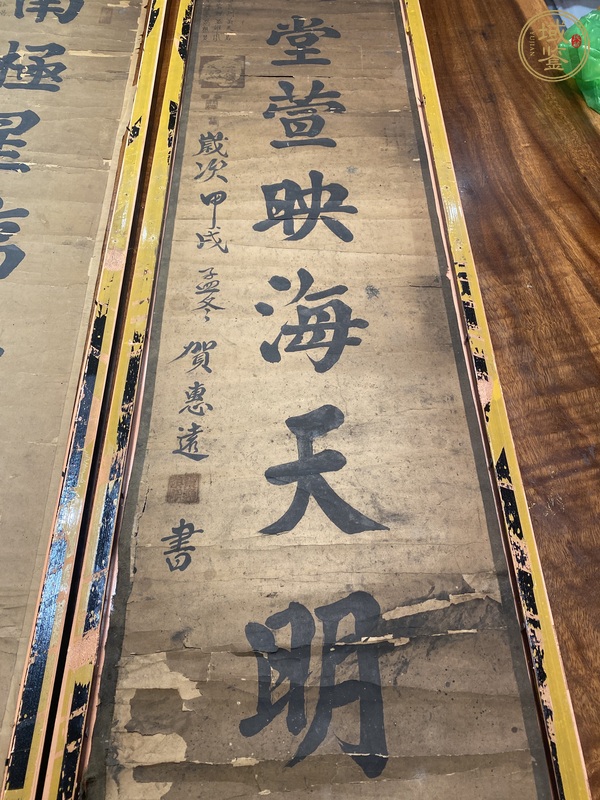 堂萱映海天明
歲次甲戌孟冬賀惠遠書
南極星